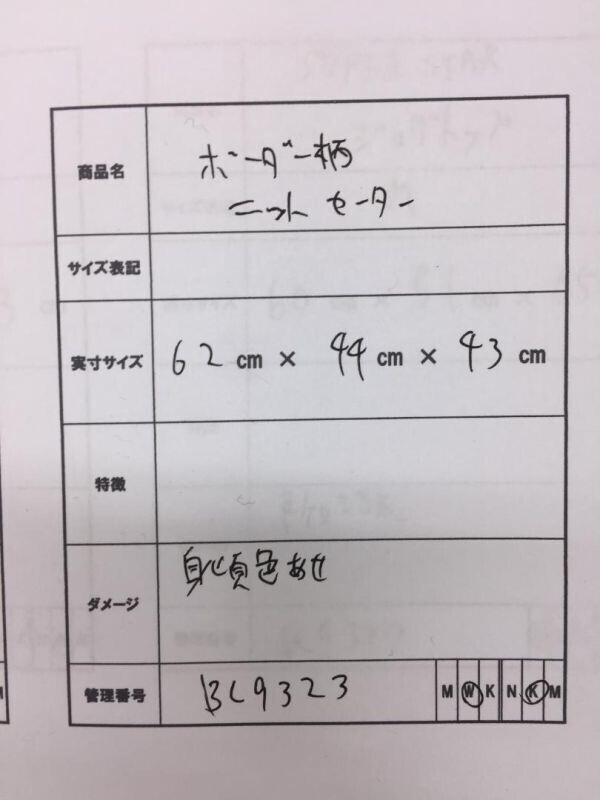 商品名
ボーダー柄
ニット セーター
サイズ表記
実寸サイズ
62 cm × 44 cm × 43 cm
特徴
ダメージ
身頃色あせ
管理番号
BC9323
M W K N K M